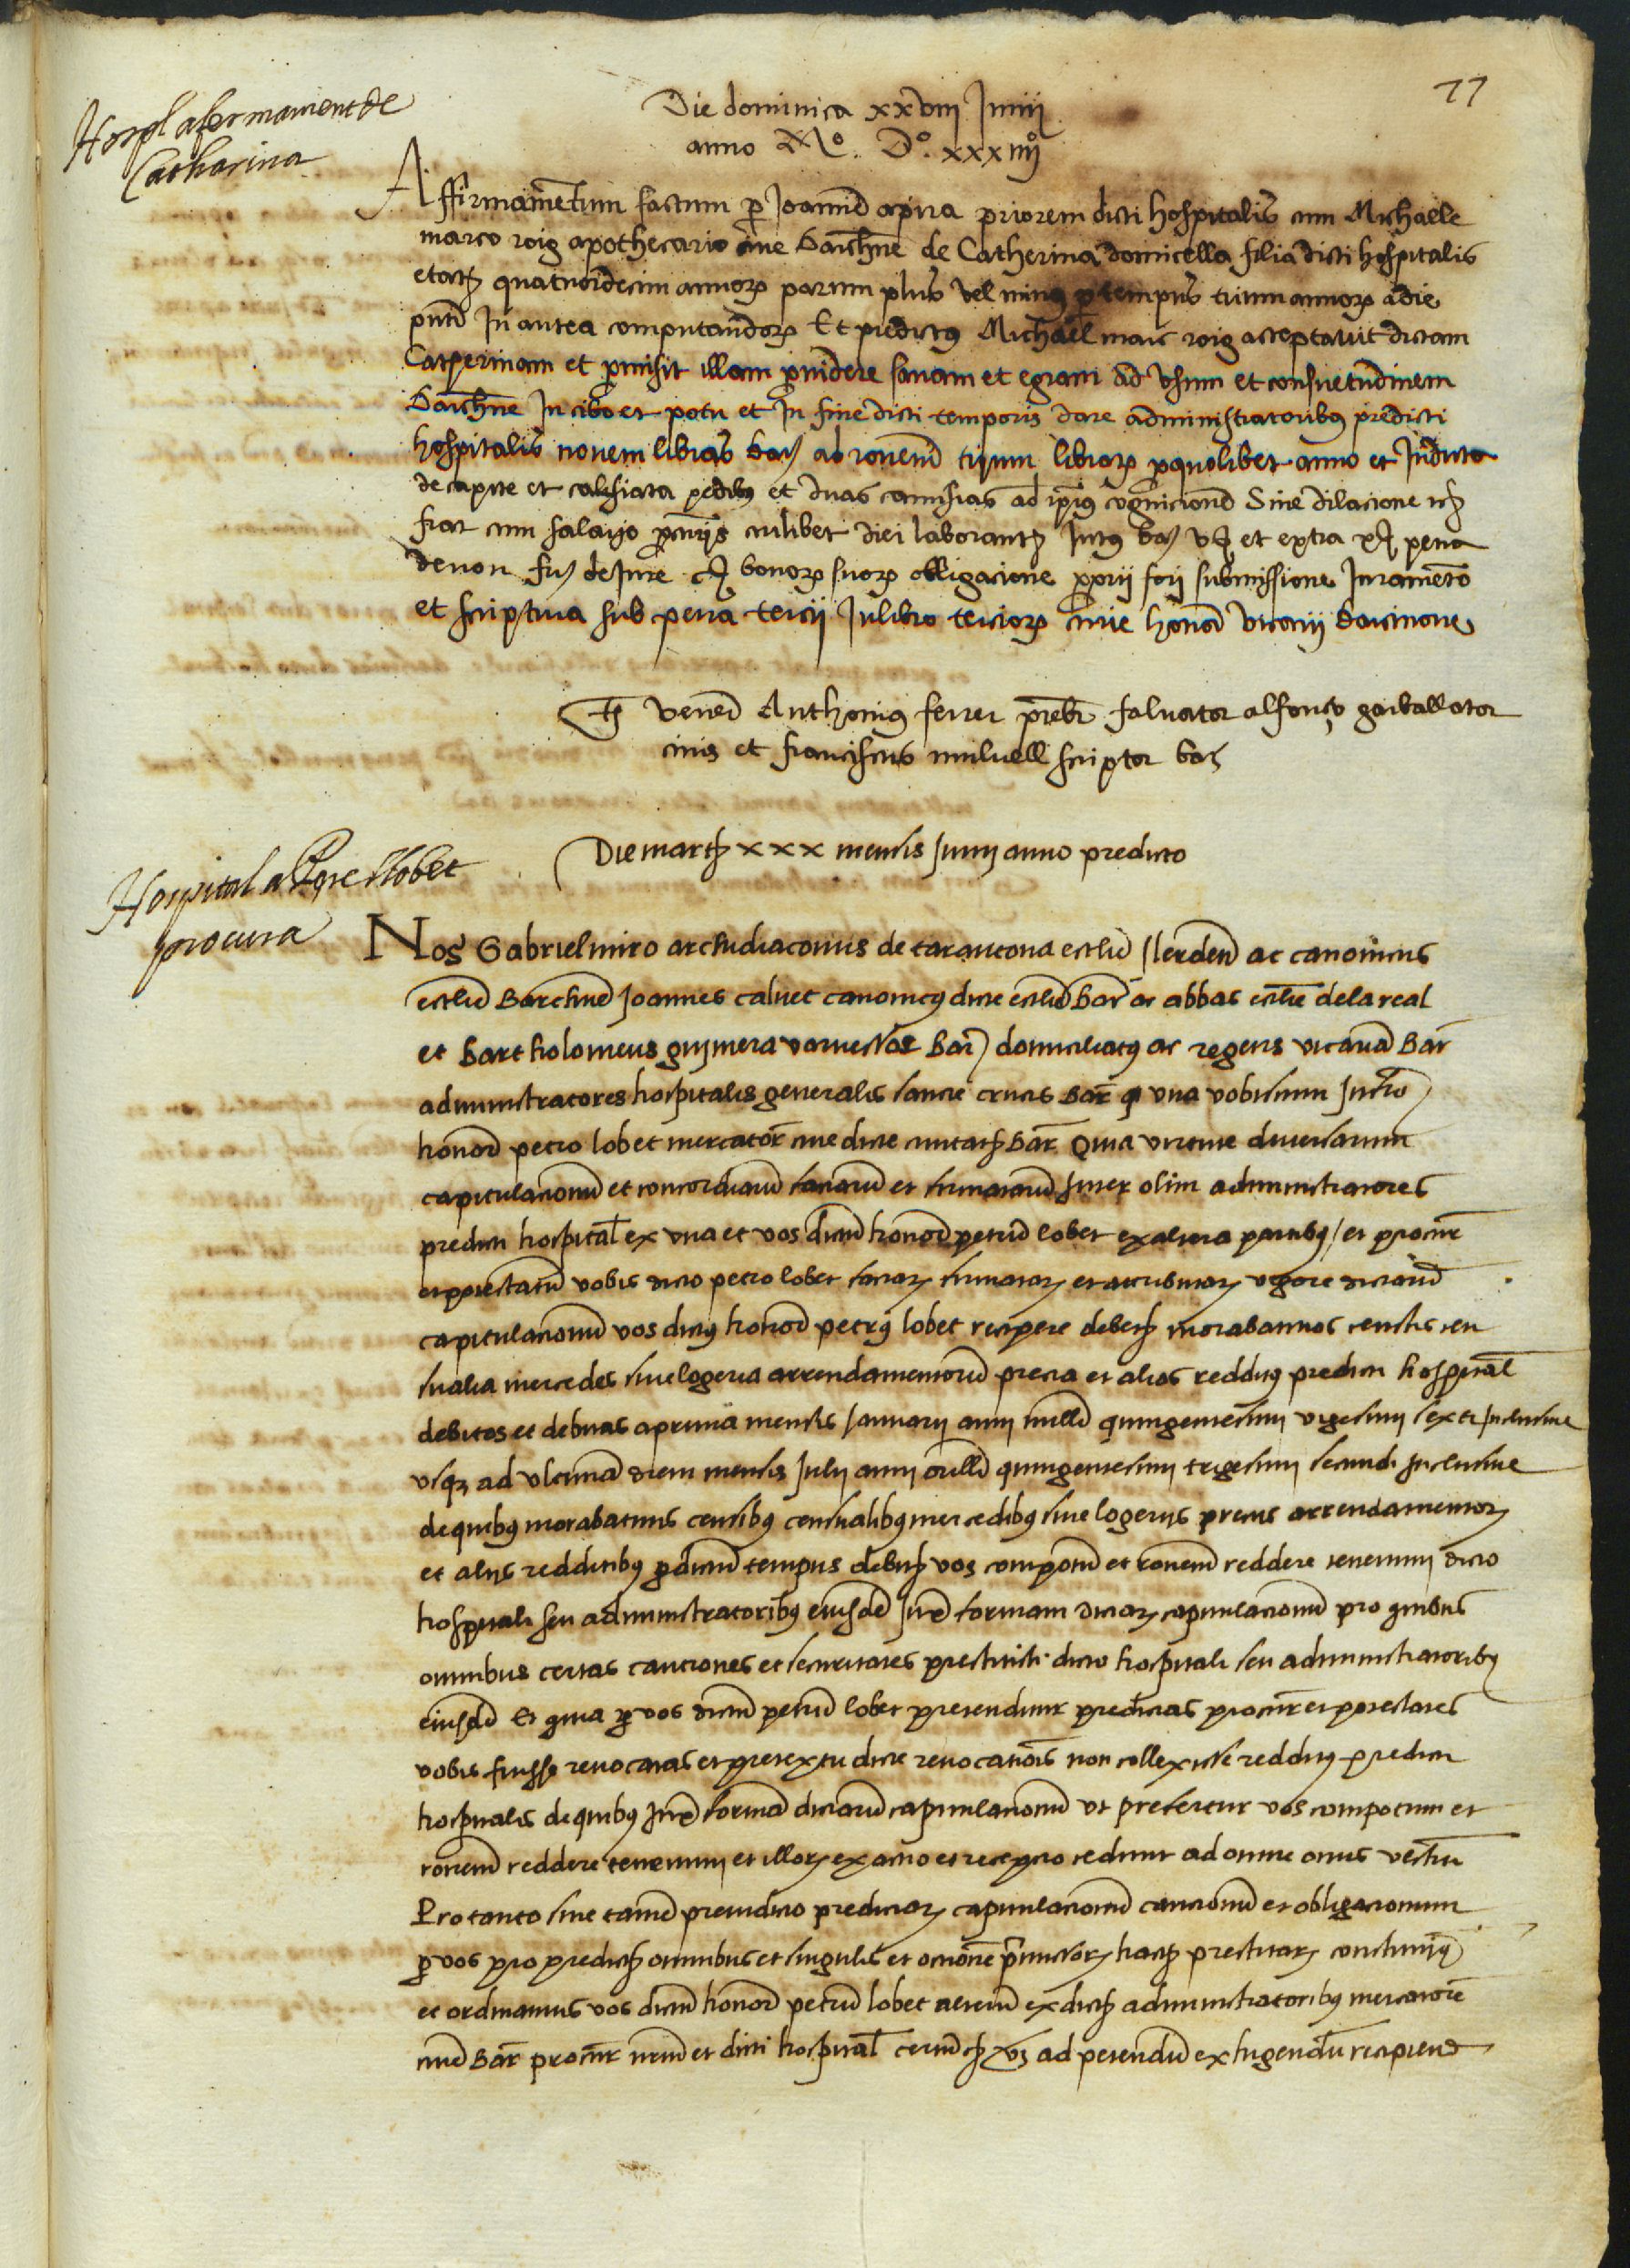 77
Hospl afermament de
Catharina
Die dominica xxviii Junii
anno Mº. Dº. xxxiiiiº
Affirmamētum factum p Joannē apira priorem dicti hospitalis cum Michaele
marco roig apothecario ciue Barchne de Catherina domicella filia dicti hospitalis
etatꝭ quatuordecim annorꝝ parum plus vel minus p tempus trium annorꝝ a die
pnti In antea computandorꝝ Et predictus Michael marc roig acceptauit dictam
Catherinam et promisit illam prouidere sanam et egram ad vsum et consuetudinem
Barchne In cibo et potu et In fine dicti temporis dare administratoribus predicti
hospitalis nouem libras bar ad ronem trium librarꝝ p quolibet anno et Induta
de capite et calsiata pedibus et duas camisias ad ipsius cognicionē Sine dilacione etc
fiat cum salario procuris cuilibet diei laborantꝭ Intus bar v ß et extra x ß pena
de non fir de Jure c ß bonorꝝ suorꝝ obligacione proprii fori submissione Juramento
et scriptura sub pena tercii In libro terciorꝝ curie honor vicarii barcinone
Ts Venerꝭ Anthonius ferrer prebr saluator alfonço garballator
ciuis et franciscus miluell scriptor bar
Die martꝭ xxx mensis Junij anno predicto
Hospital a Pere llobet
procura
Nos Gabriel miro archidiaconus de tarantona ecclie Ilerdeñ ac canonicus
ecclie Barchne Joannes caluet canonicus dicte ecclie Bar ac abbas ecclie de la real
et Bartholomeus guimera Bar domiciliatus ac regens vicariã Bar
administratores hospitalis generalis sancte crucis Bar q vna vobiscum
honorꝭ petro lobet mercatorꝭ ciue dicte ciuitatꝭ Bar Quia virtute diuersarum
capitulacionū et concordiarū factarū et firmatarū Inter olim administratores
predicti hospital ex vna et vos dictū honorē petrū lobet ex altera partibus / et procure
et potestatū vobis dicto petro lobet factarꝝ firmatarꝝ et vigore dictarū
capitulacionū vos dictus honorꝭ petrus lobet recipere debetꝭ morabatinos census cen
sualia mercedes siue logeria arrendamentorū precia et alios redditus predicti hospital
debitos et debitas a prima mensis Januarii anni millꝭ quingentesimi vigesimi sexti Inclusiue
vsqꝫ ad vltimã diem mensis Julij anni millꝭ quingentesimi trigesimi secundi Inclusiue
de quibus morabatinis censibus censualibus mercedibus siue logeriis preciis arrendamentorꝝ
et aliis redditibus p dictū tempus debitꝭ vos compotū et ronem reddere tenemini dicto
hospitali seu administratoribus eiusdē Juxᵉ formam dictarꝝ capitulacionū pro quibus
omnibus certas cauciones et securitates prestitisti dicto hospitali seu administratoribus
eiusdē Et quia p vos dictū petrū lobet pretenditur predictas procure et potestates
vobis fuisse reuocatas et pretextu dicte reuocationis non collexisse redditus predicti
hospitalis de quibus Juxᵉ formã dictarū capitulacionū vt prefertur vos compotum et
ronem reddere tenemini et illorꝝ exactio et recepcio cedunt ad omne onus vestru
Pro tanto sine tamē preiudicio predictarꝝ capitulacionū caucionū et obligacionum
p vos pro predictꝭ omnibus et singulis et ocasione pmissorꝝ hactꝭ prestitarꝝ constituimus
et ordinamus vos dictū honorꝭ petrū lobet alterū ex dictꝭ administratoribus mercatorē
ciuē Bar procur nrm et dicti hospital certū etc vꝫ ad petendū exhigendū recipiend